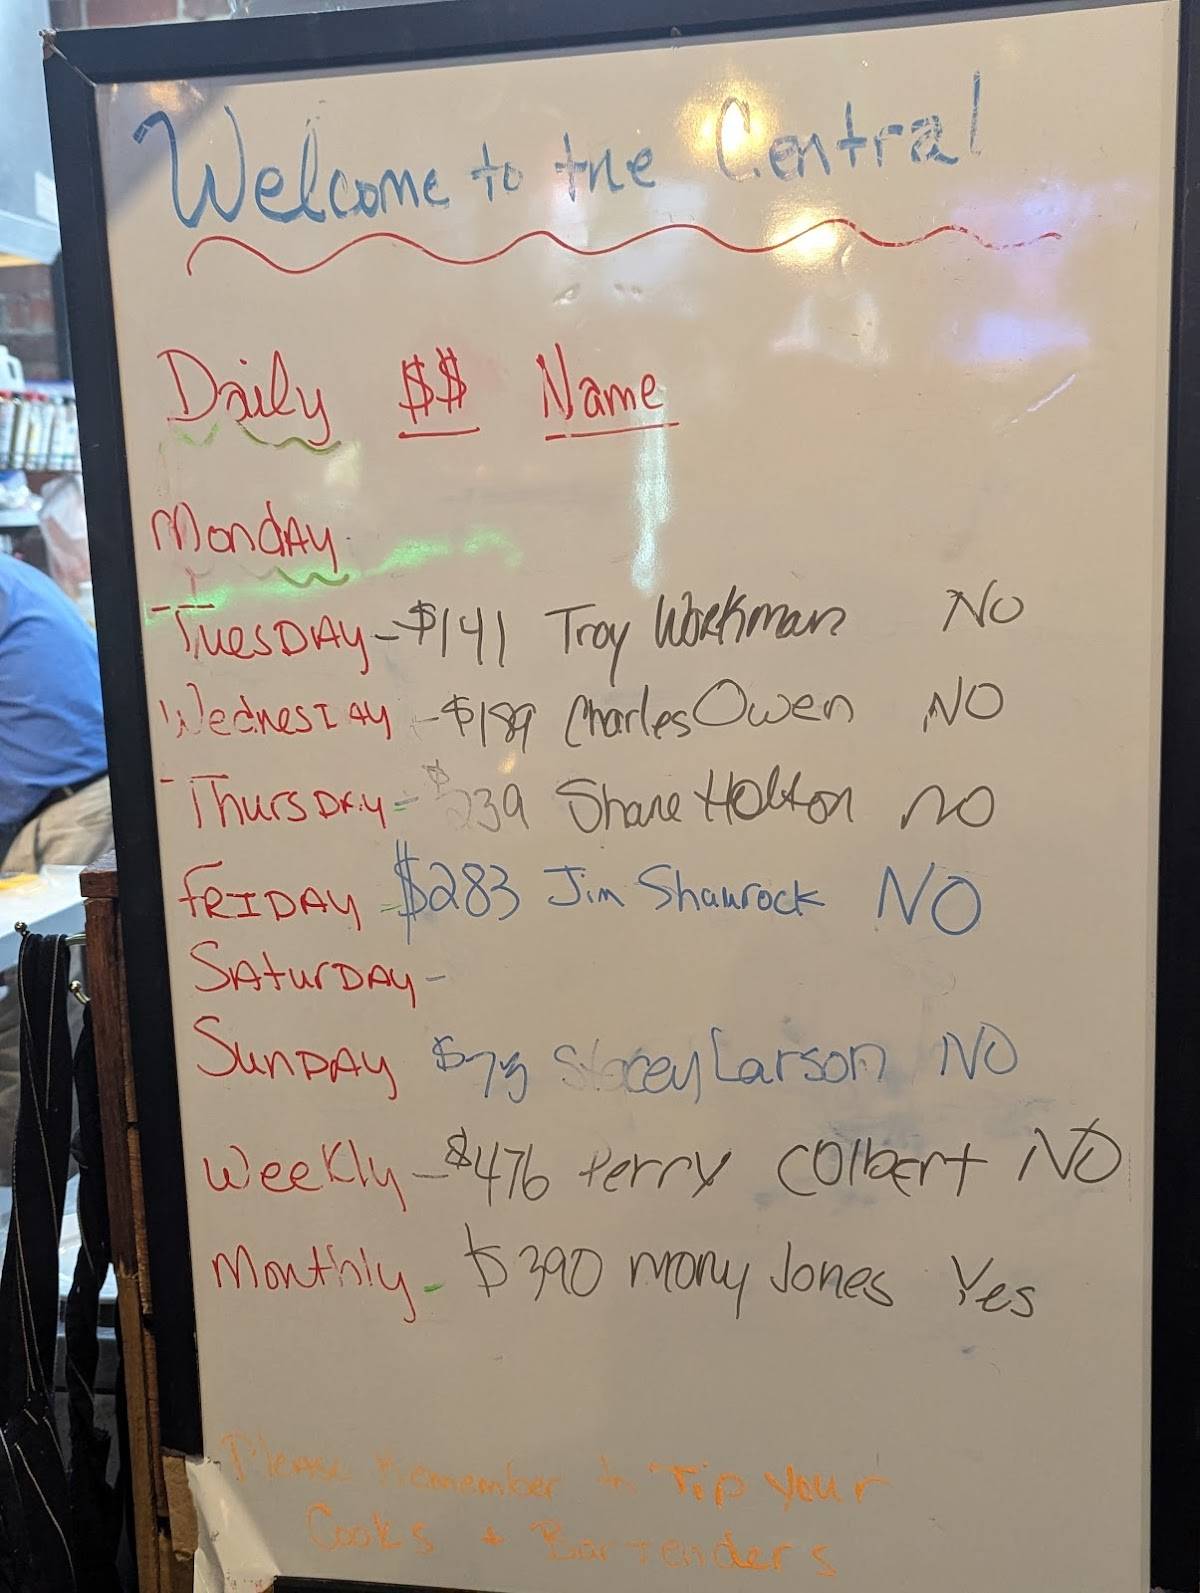 Welcome to the Central
Daily $$ Name
Monday
Tuesday - $141 Troy Workman No
Wednesday - $189 Charles Owen NO
Thursday - $239 Shane Holton no
Friday - $283 Jim Shamrock NO
Saturday -
Sunday Stacey Larson NO
Weekly - $476 Perry Colbert NO
Monthly - $390 mony Jones Yes
Please Remember to Tip Your
Cooks + Bartenders